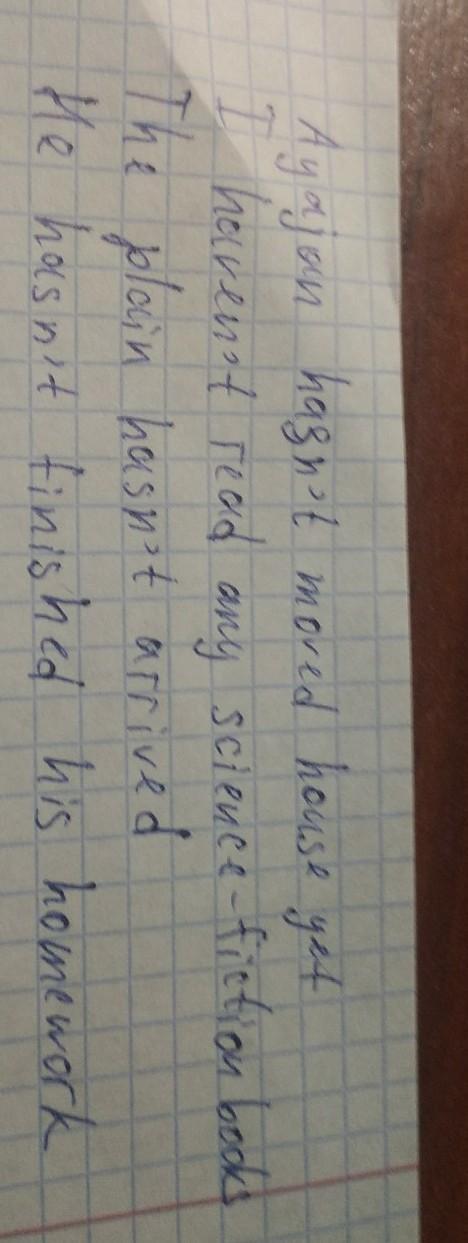 Ayajan hasn't moved house yet
I haven't read any science-fiction books
The plain hasn't arrived
He hasn't finished his homework